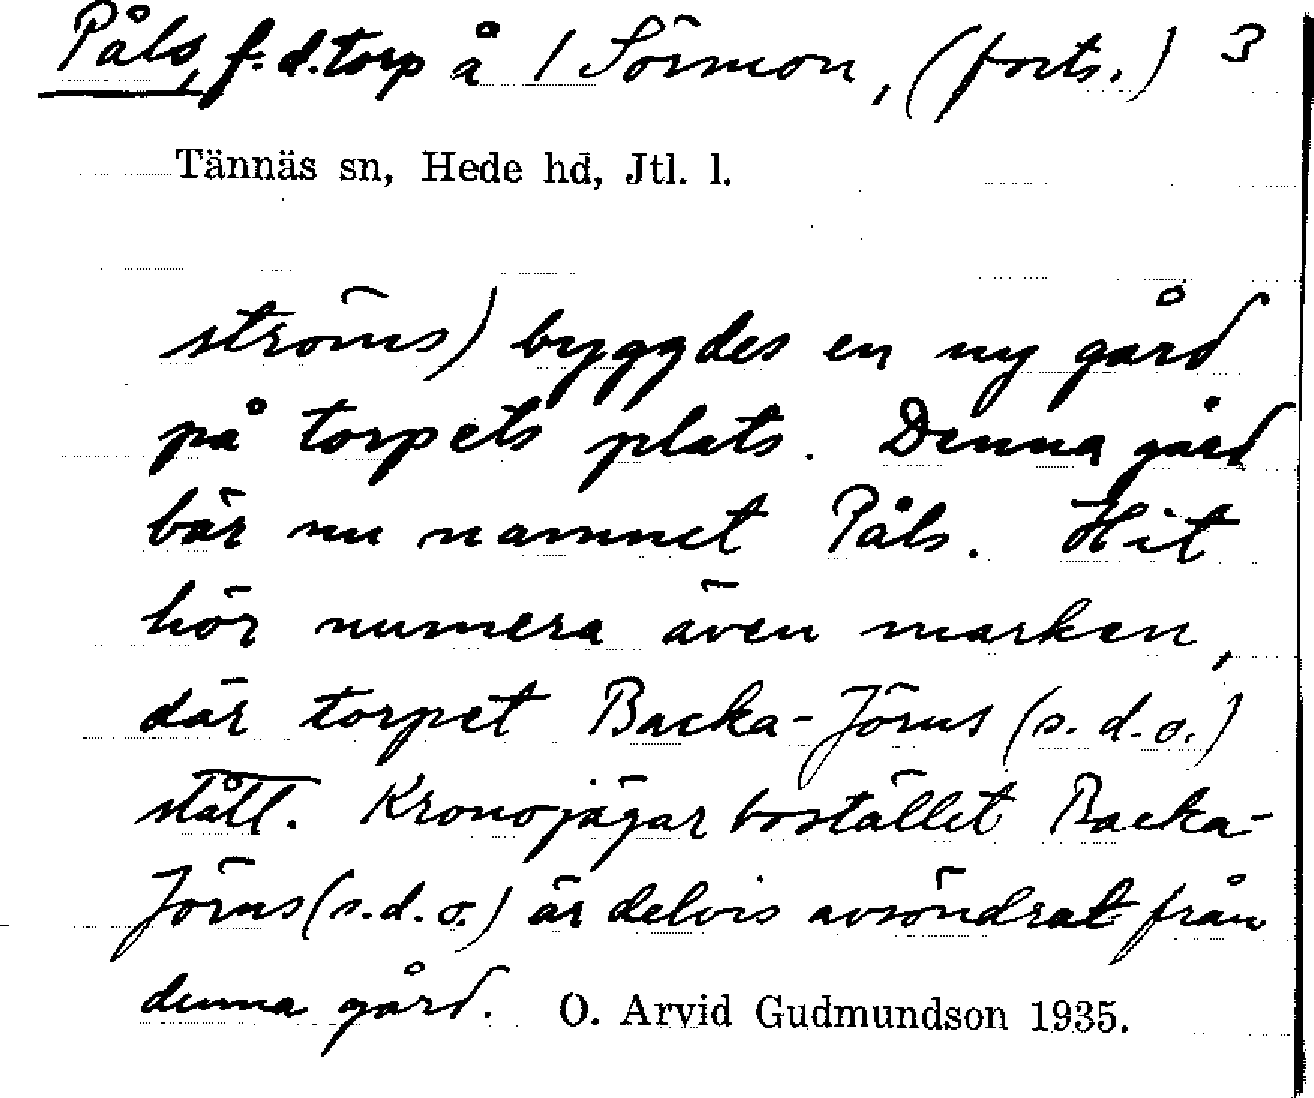 Påls, f. d. torp å 1 Sörmon, (forts.) 3
Tännäs sn, Hede hd, Jtl. l.
ströms) byggdes en ny gård
på torpets plats. Denna gård
bär nu namnet Påls. Hit
hör numera även marken,
där torpet Backa-Jörns (s.d.o.)
stått. Kronojägarbostället Backa-
Jörns (s.d.o.) är delvis avsöndrat från
denna gård. O. Arvid Gudmundson 1935.